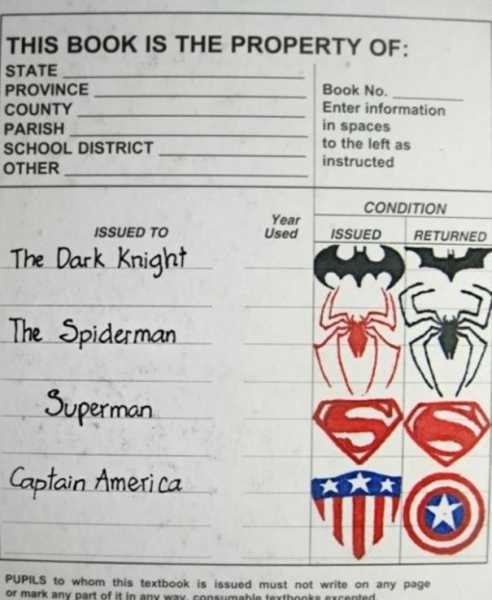 THIS BOOK IS THE PROPERTY OF:
STATE
PROVINCE
COUNTY
PARISH
SCHOOL DISTRICT
OTHER
Book No.
Enter information
in spaces
to the left as
instructed
CONDITION
ISSUED TO Year Used ISSUED RETURNED
The Dark Knight
The Spiderman
Superman
Captain America
PUPILS to whom this textbook is issued must not write on any page
or mark any part of it in any way, consumable textbooks excepted.